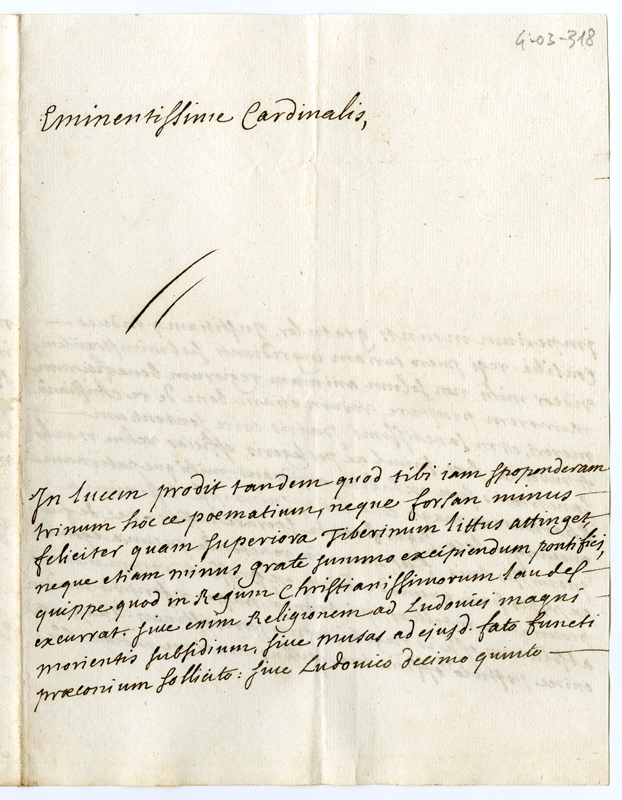 G-03-318
Eminentissime Cardinalis,
In lucem prodit tandem quod tibi iam spoponderam
trinum hocce poematium, neque forsan minus
feliciter quam superiora Tiberinum littus attinget,
neque etiam minus grate summo excipiendum pontifici,
quippe quod in Regum Christianissimorum laudes
excurrat. sive enim Religionem ad Ludovici magni
morientis subsidium, sive musas ad ejusd. fato functi
præconium sollicito: sive Ludovico decimo quinto